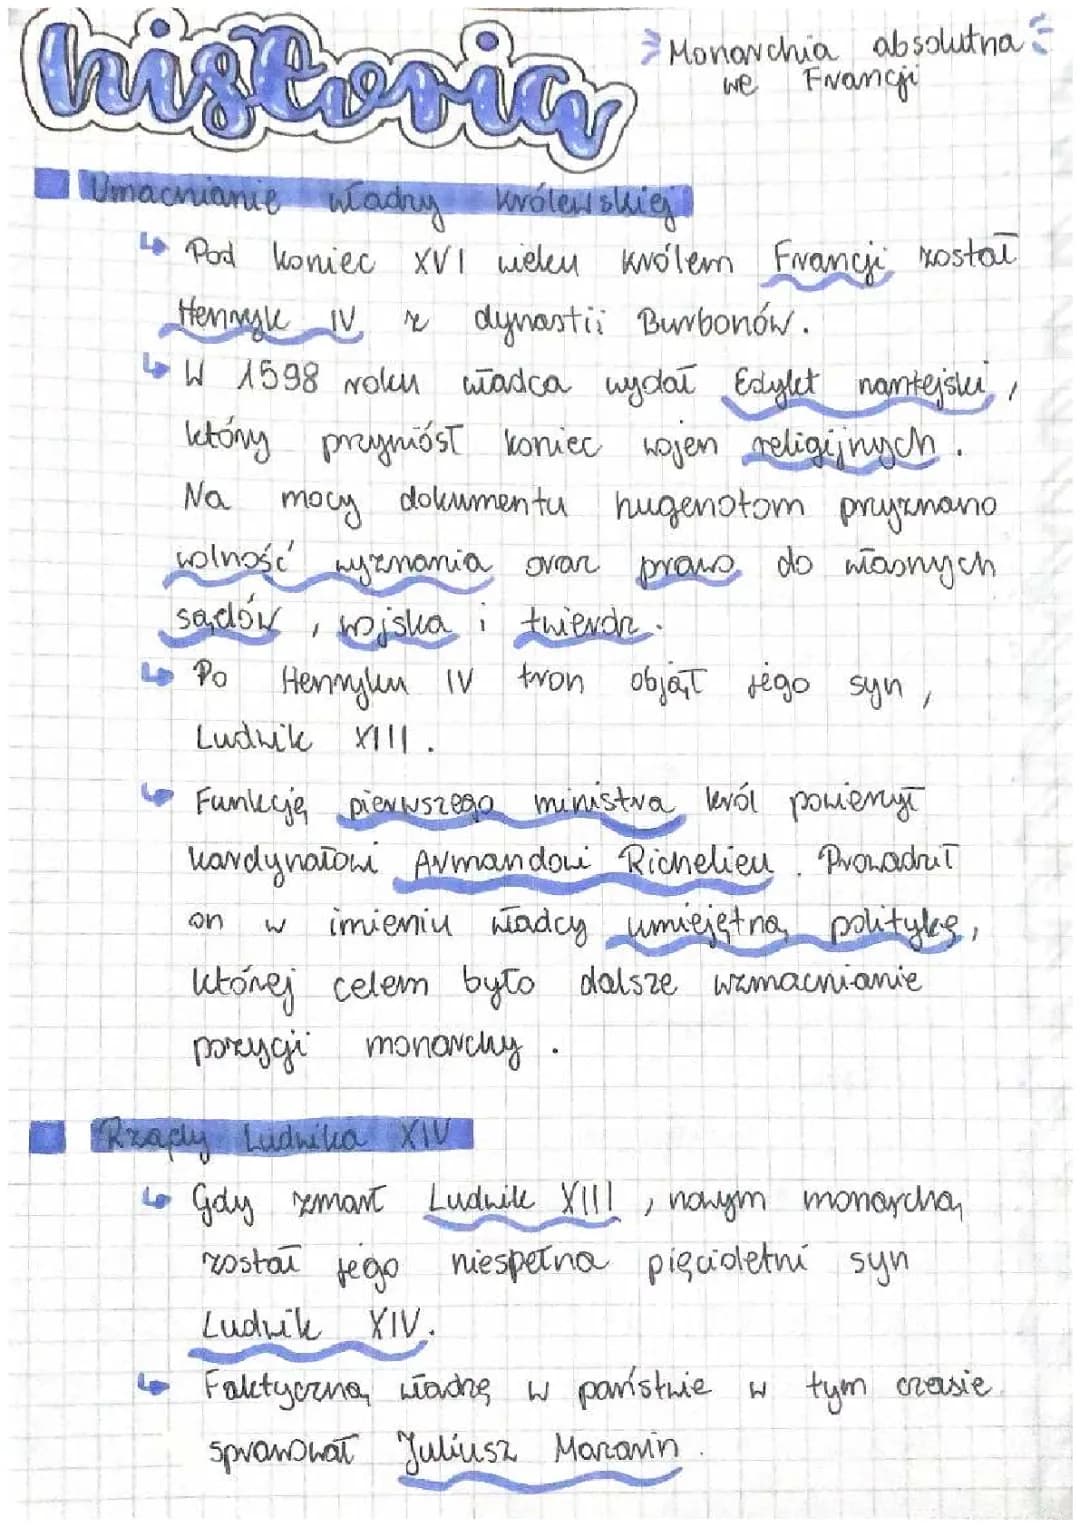 historia
Monarchia absolutna
we Francji
Umacnianie władzy królewskiej
Pod koniec XVI wieku królem Francji został
Henryk IV z dynastii Burbonów.
W 1598 roku władca wydał Edykt nantejski,
który przyniósł koniec wojen religijnych.
Na mocy dokumentu hugenotom przyznano
wolność wyznania oraz prawo do własnych
sądów, wojska i twierdz.
Po Henryku IV tron objął jego syn,
Ludwik XIII.
Funkcję pierwszego ministra król powierzył
kardynałowi Armandowi Richelieu. Prowadził
on w imieniu władcy umiejętną politykę,
której celem było dalsze wzmacnianie
pozycji monarchy.
Rządy Ludwika XIV
Gdy zmarł Ludwik XIII, nowym monarchą
został jego niespełna pięcioletni syn
Ludwik XIV.
Faktyczną władzę w państwie w tym czasie
sprawował Juliusz Mazarin.